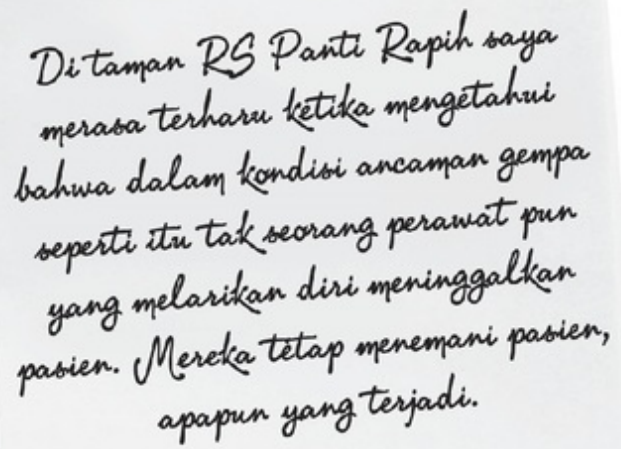 Di taman RS Panti Rapih saya
merasa terharu ketika mengetahui
bahwa dalam kondisi ancaman gempa
seperti itu tak seorang perawat pun
yang melarikan diri meninggalkan
pasien. Mereka tetap menemani pasien,
apapun yang terjadi.